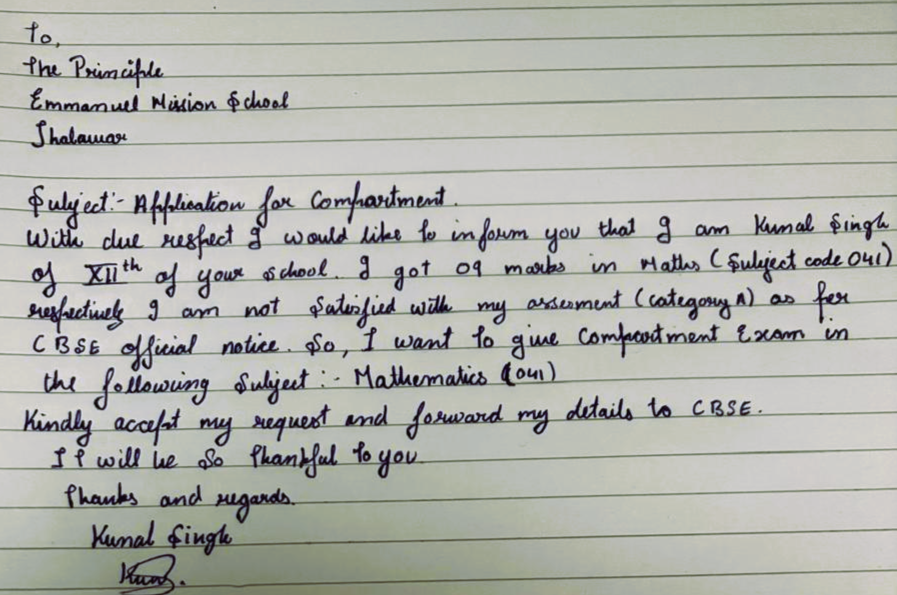 To,
The Principle
Emmanuel Mission School
Jhalawar
Subject:- Application for Compartment.
With due respect I would like to inform you that I am Kunal Singh
of XIIth of your school. I got 09 marks in Maths (Subject code 041)
respectively I am not Satisfied with my assesment (category A) as per
CBSE official notice. So, I want to give Compartment Exam in
the following Subject:- Mathematics (041)
Kindly accept my request and forward my details to CBSE.
It will be So thankful to you
Thanks and regards.
Kunal Singh